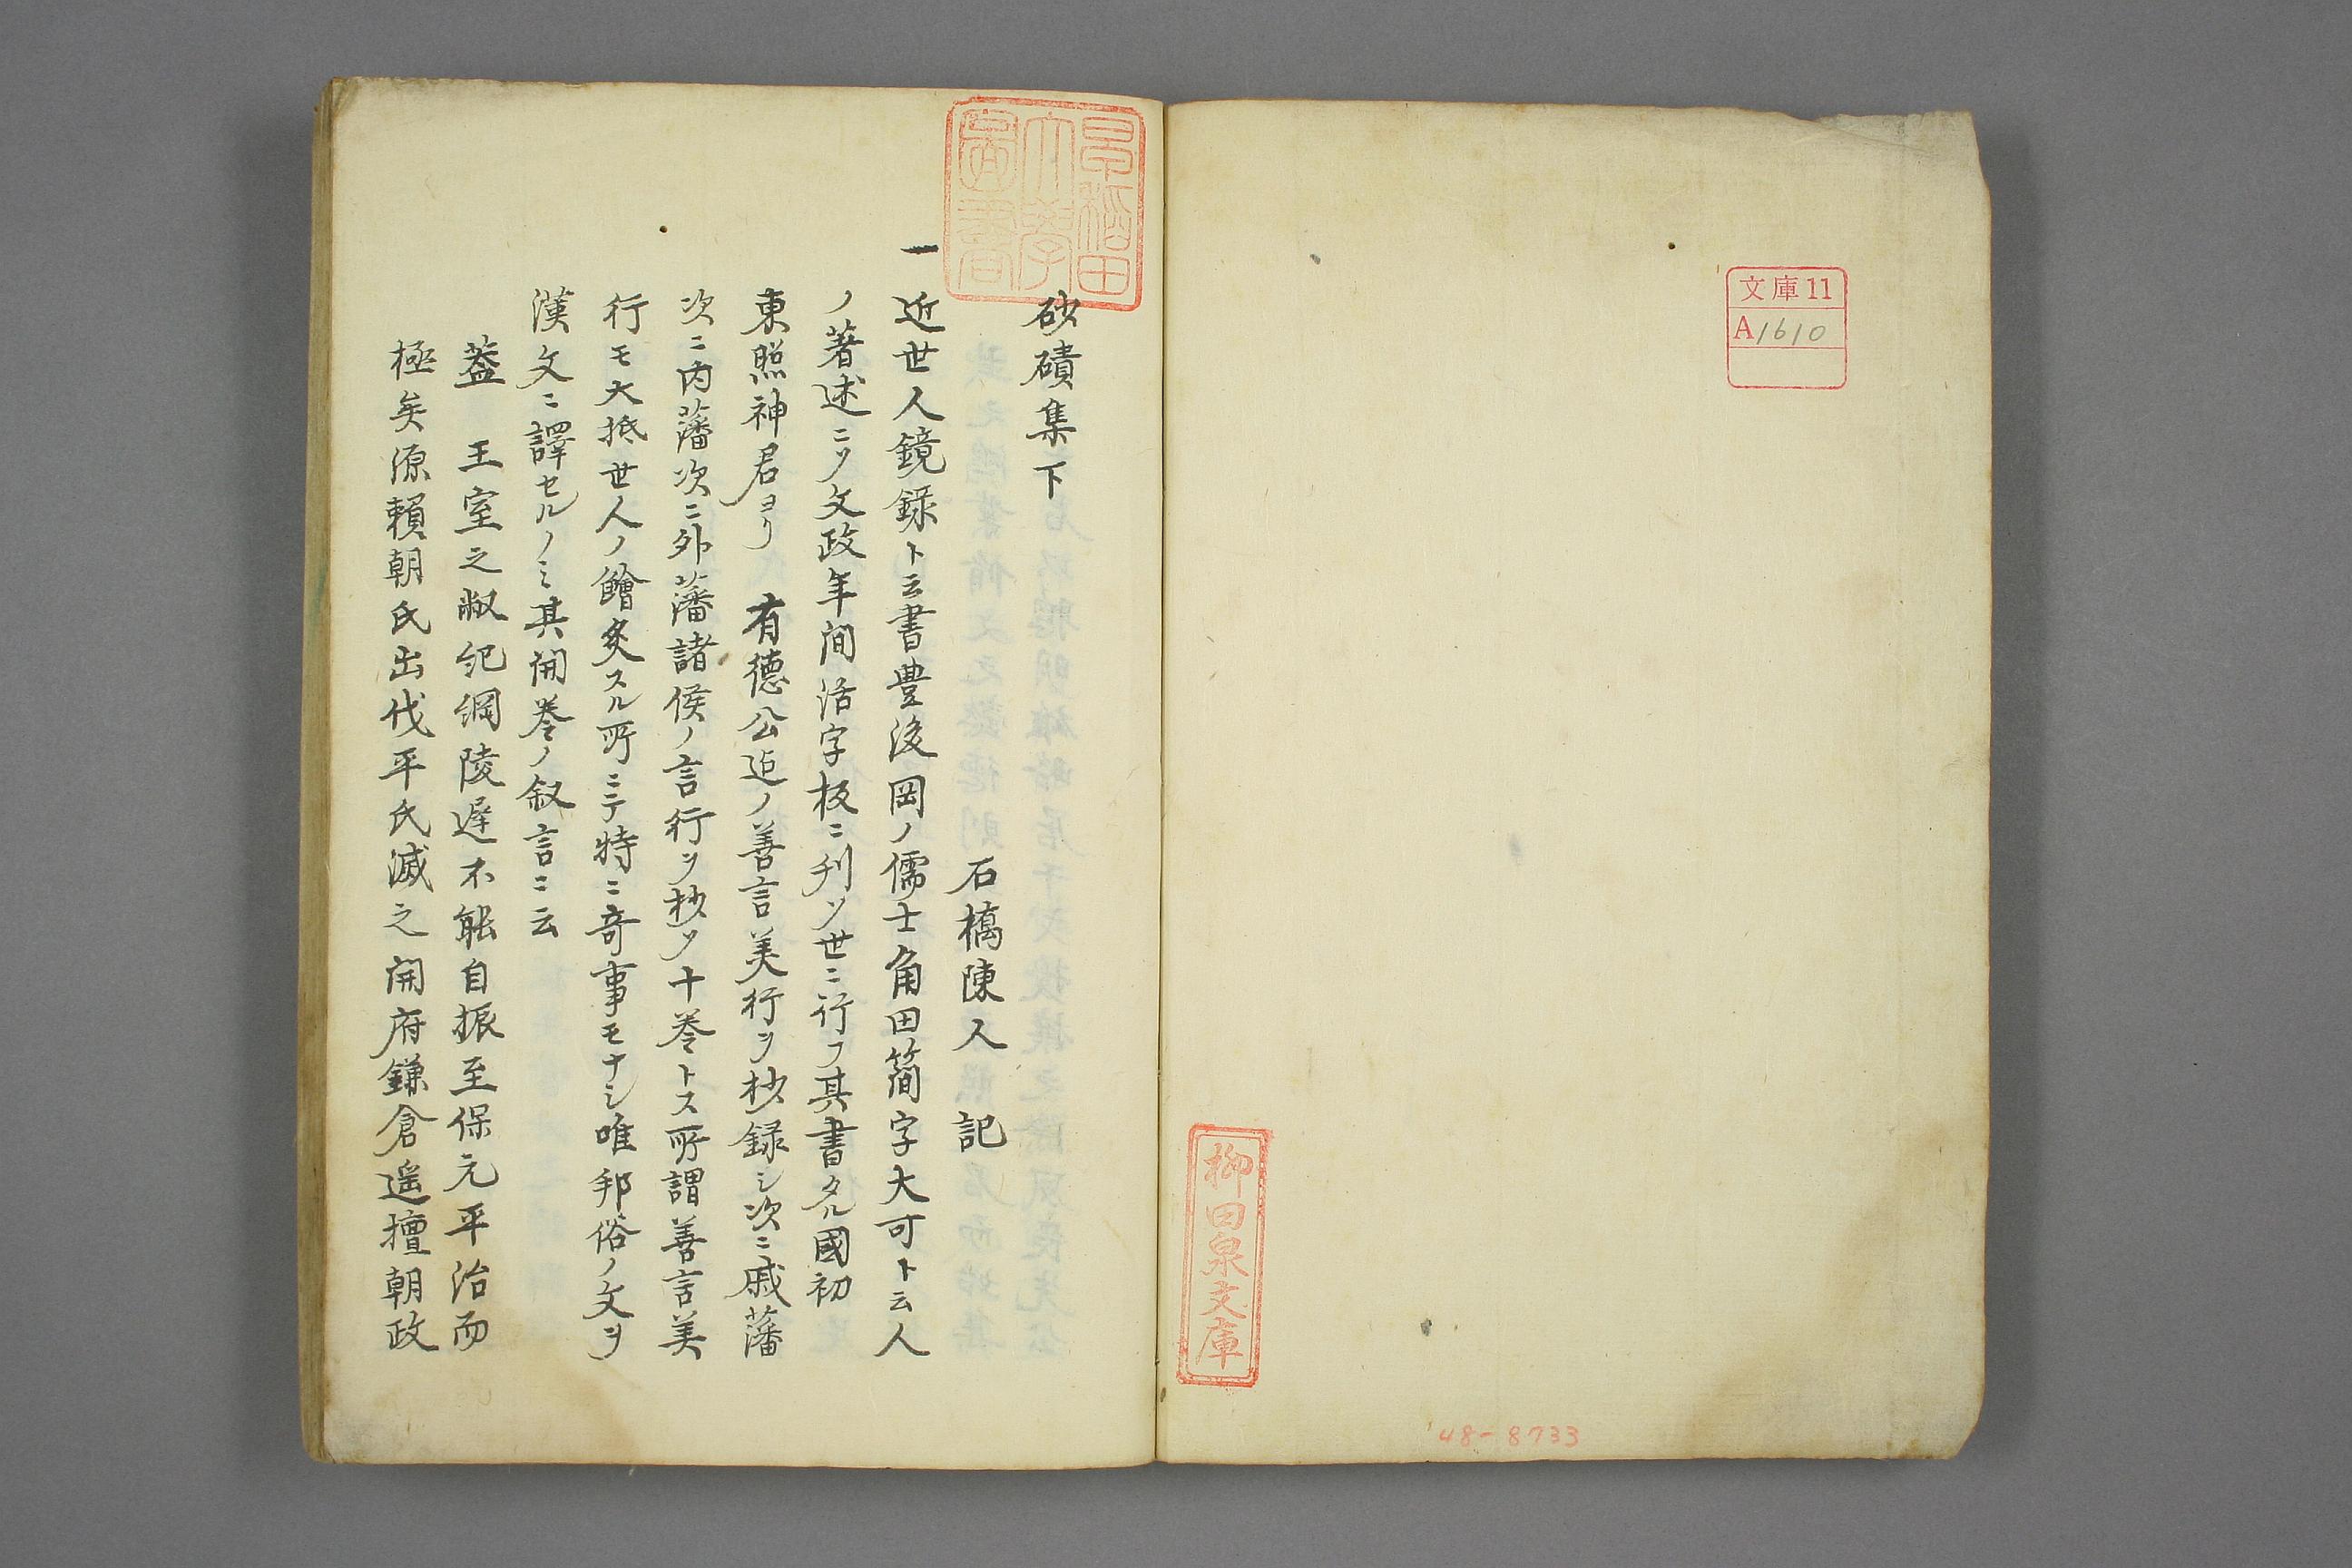 文庫11
A1610
柳田泉文庫
48-8733
早稲田大学図書
砂磧集下
石橋陳人 記
一 近世人鏡録ト云書豊後岡ノ儒士角田簡字大可ト云人
ノ著述ニヿ文政年間活字板ニ刋ソ世ニ行フ其書タル國初
東照神君ヨリ 有徳公迠ノ善言美行ヲ抄録シ次ニ戚藩
次ニ内藩次ニ外藩諸侯ノ言行ヲ抄ソ十巻トス所謂善言美
行モ大抵世人ノ鱠炙スル所ニテ特ニ竒事モナシ唯邦俗ノ文ヲ
漢文ニ譯セルノミ其開巻ノ叙言ニ云
葢 王室之敝紀綱陵遅不能自振至保元平治而
極矣源頼朝氏出伐平氏滅之開府鎌倉遥擅朝政